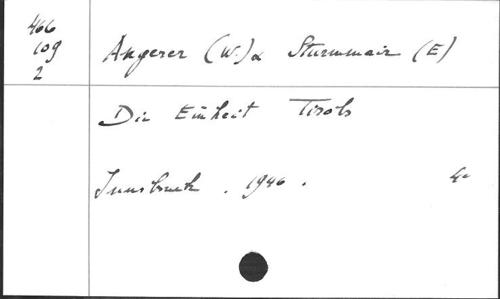 466
109
2
Angerer (W.) & Sturmmair (E)
Die Einheit Tirols
Innsbruck . 1946 . 4°